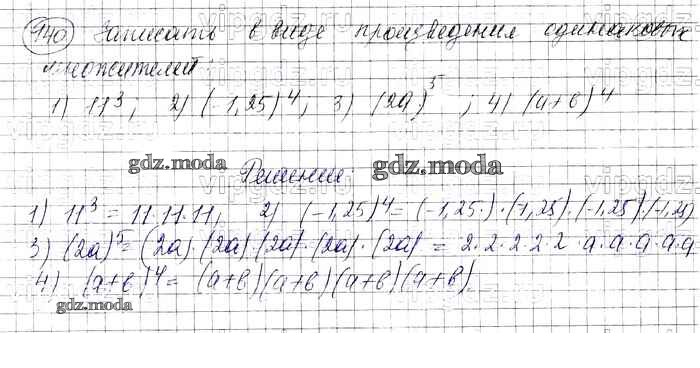 940. Записать в виде произведения одинаковых
множителей
1) 11³; 2) (-1,25)⁴; 3) (2a)⁵; 4) (a+b)⁴
gdz.moda
Решение:
gdz.moda
1) 11³ = 11·11·11; 2) (-1,25)⁴ = (-1,25)·(-1,25)·(-1,25)·(-1,25)
3) (2a)⁵ = (2a)·(2a)·(2a)·(2a)·(2a) = 2·2·2·2·2·a·a·a·a·a
4) (a+b)⁴ = (a+b)(a+b)(a+b)(a+b)
gdz.moda